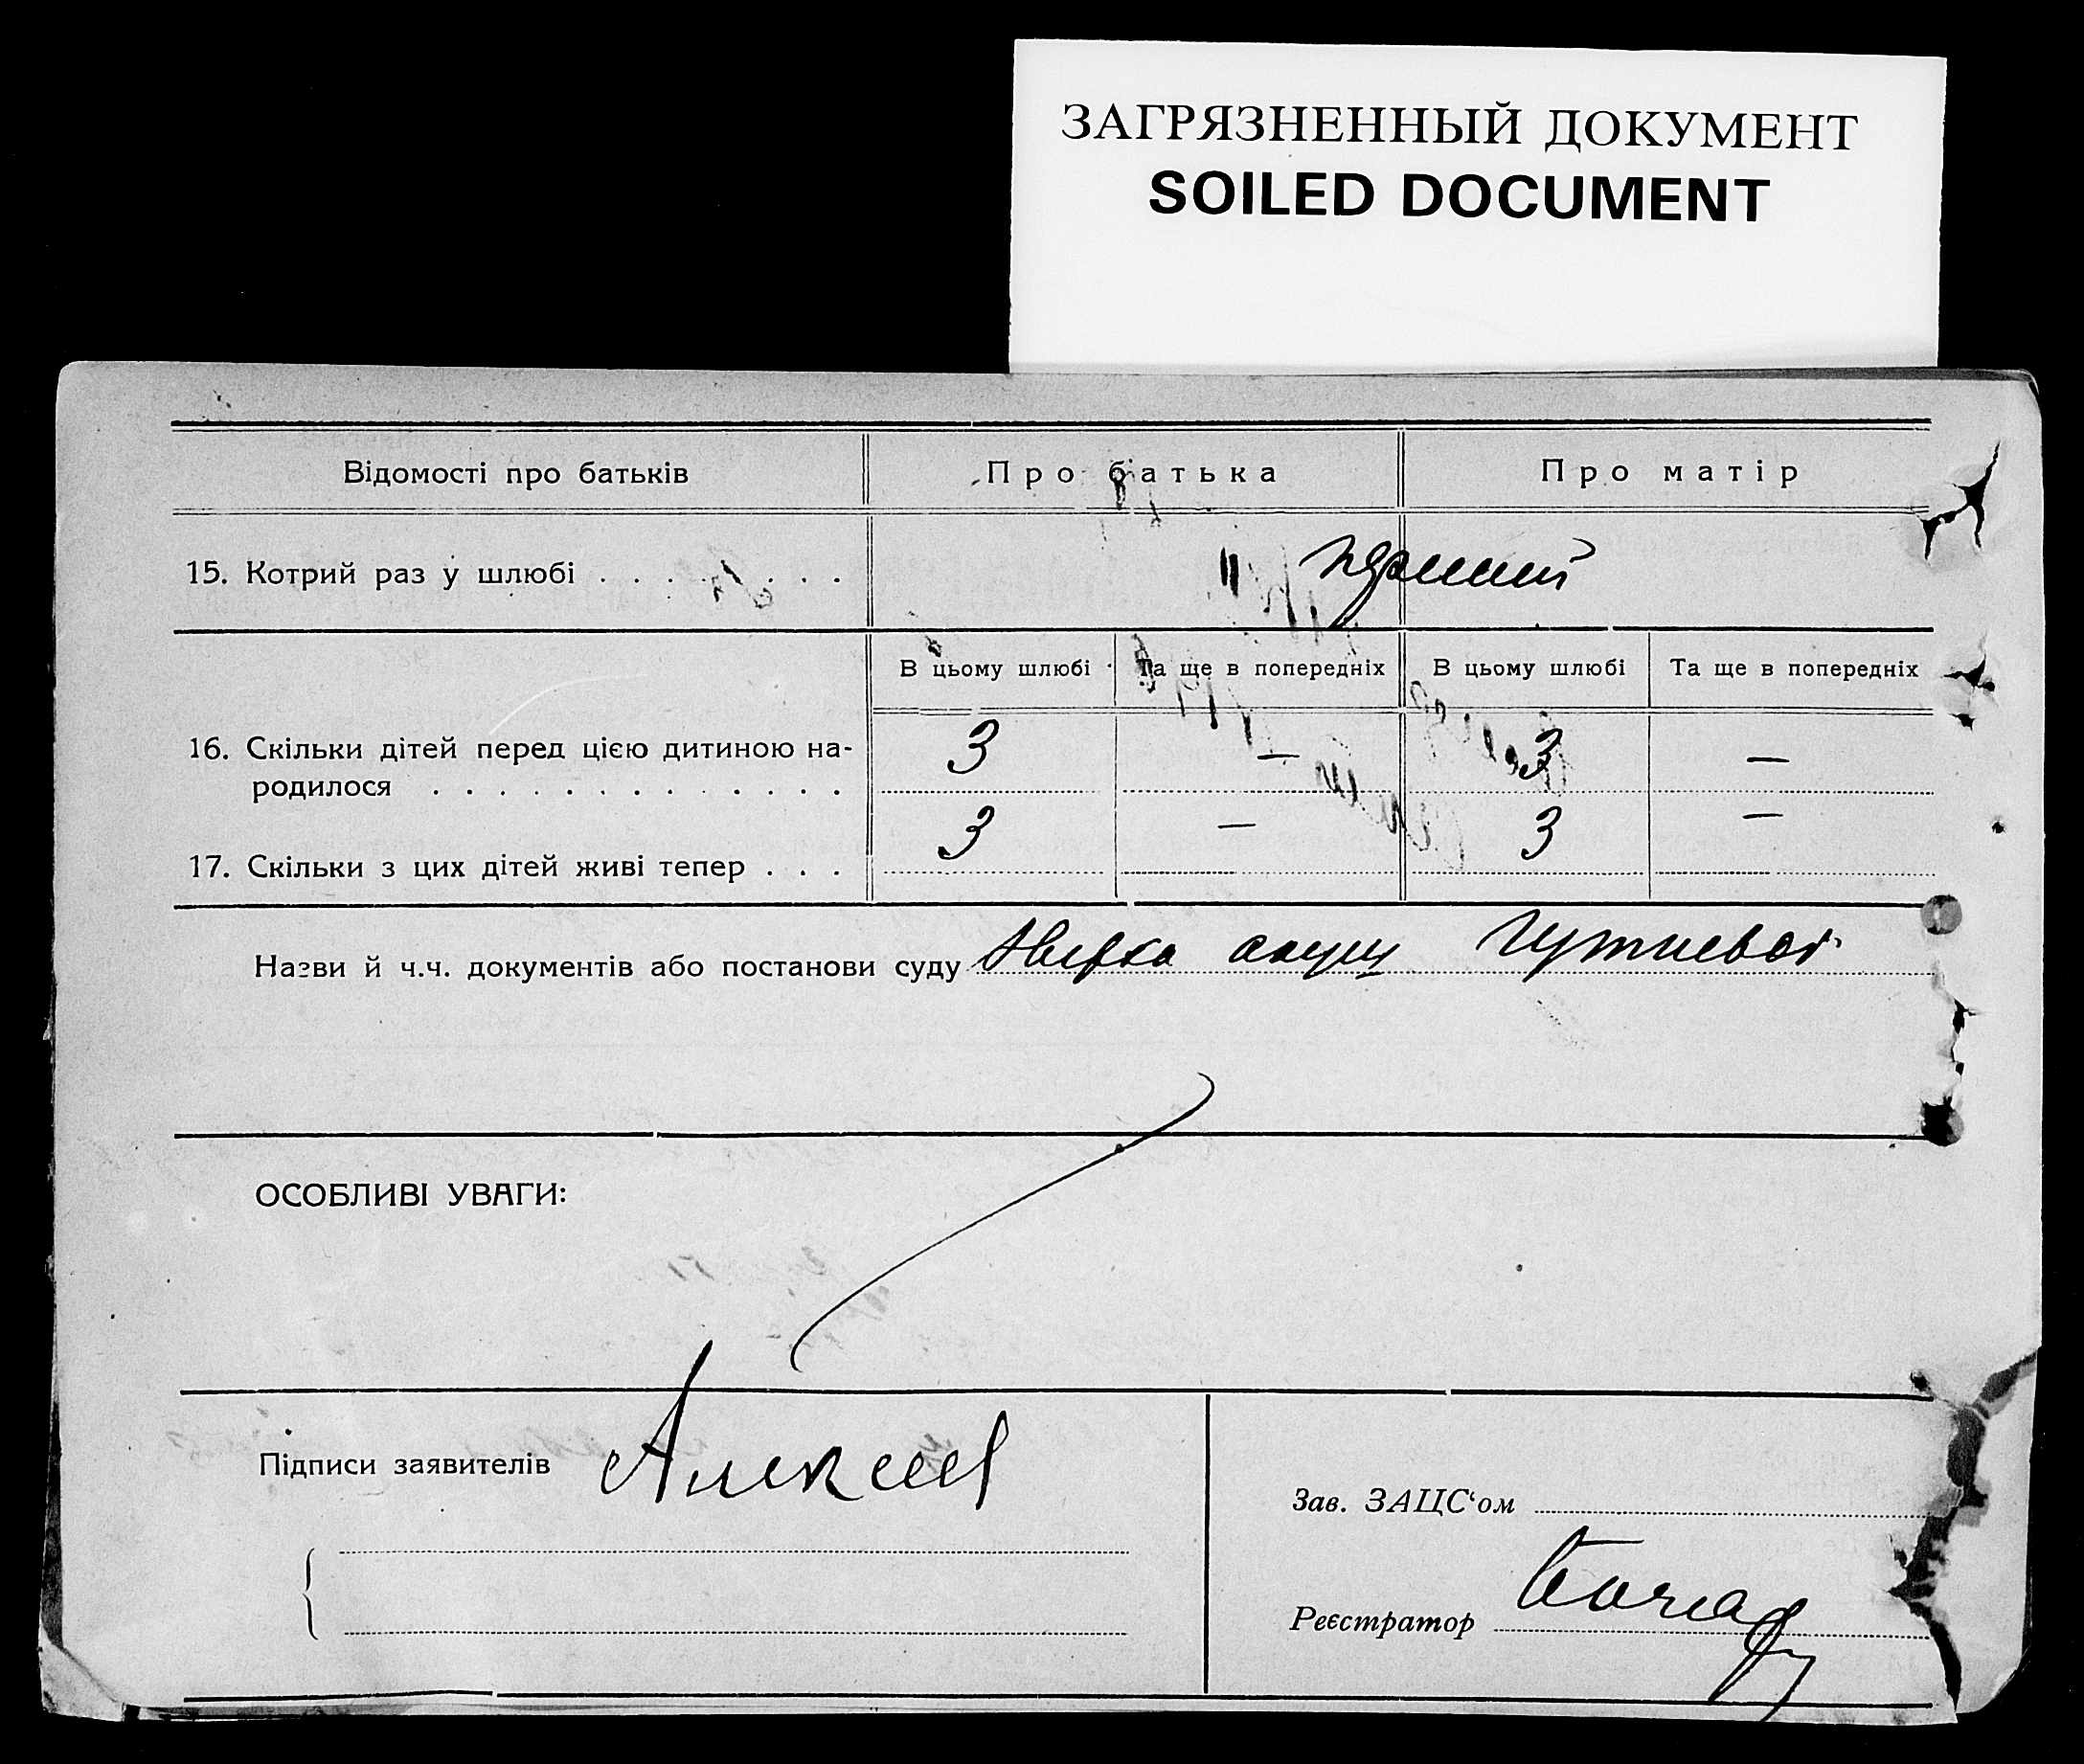 ЗАГРЯЗНЕННЫЙ ДОКУМЕНТ
SOILED DOCUMENT
Відомості про батьків Про батька Про матір
15. Котрий раз у шлюбі . . . . . . . . перший
В цьому шлюбі Та ще в попередніх В цьому шлюбі Та ще в попередніх
16. Скільки дітей перед цією дитиною на-
родилося . . . . . . . . . . . . . 3 — 3 —
17. Скільки з цих дітей живі тепер . . . 3 — 3 —
Назви й ч.ч. документів або постанови суду
ОСОБЛИВІ УВАГИ:
Підписи заявителів Алексеев
Зав. ЗАЦС‘ом
Реєстратор